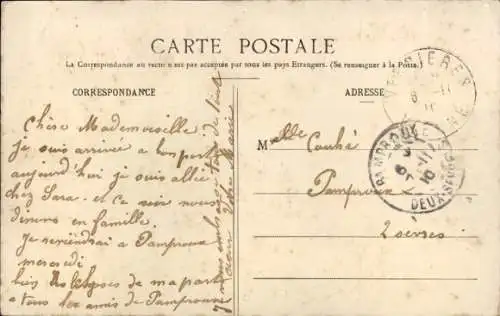 CARTE POSTALE
La Correspondance au recto n'est pas acceptée par tous les pays Etrangers. (Se renseigner à la Poste)
CORRESPONDANCE
ADRESSE
Chère Mademoiselle
je suis arrivée a bon port
aujourd'hui je suis allée
chez Sara. et ce soir nous
dinons en famille.
Je reviendrai a Pamproux
mercredi
bien des choses de ma part
a tous les amis de Pamproux
je vous embrasse
Votre amie
Melle Couhé
Pamproux
2 sevres
PAMPROUX
DEUX-SEVRES